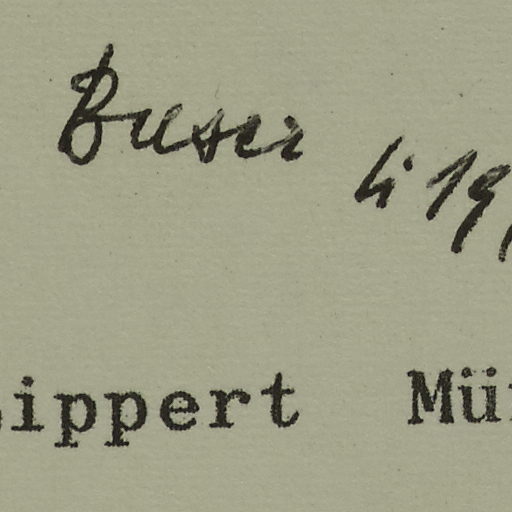 Buser li 19
ippert Mü